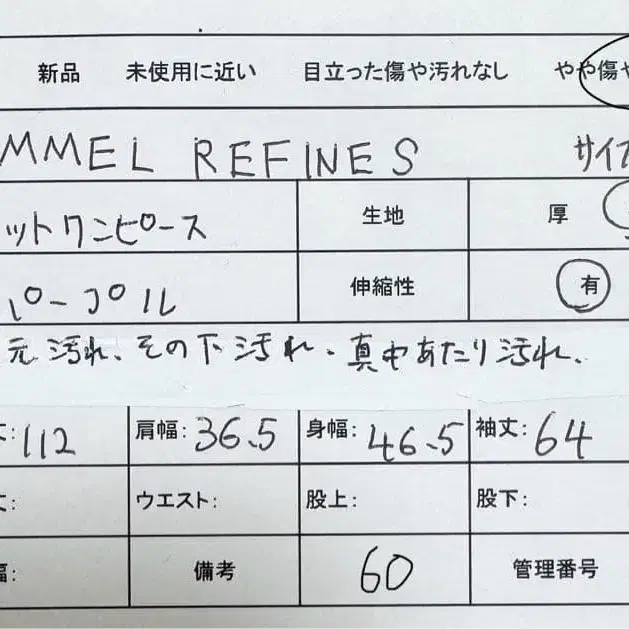 新品 未使用に近い 目立った傷や汚れなし やや傷や
MMEL REFINES サイズ
ットワンピース 生地 厚
パープル 伸縮性 有
元汚れ、その下汚れ、真中あたり汚れ、
丈:112 肩幅:36.5 身幅:46.5 袖丈:64
丈: ウエスト: 股上: 股下:
幅: 備考 60 管理番号